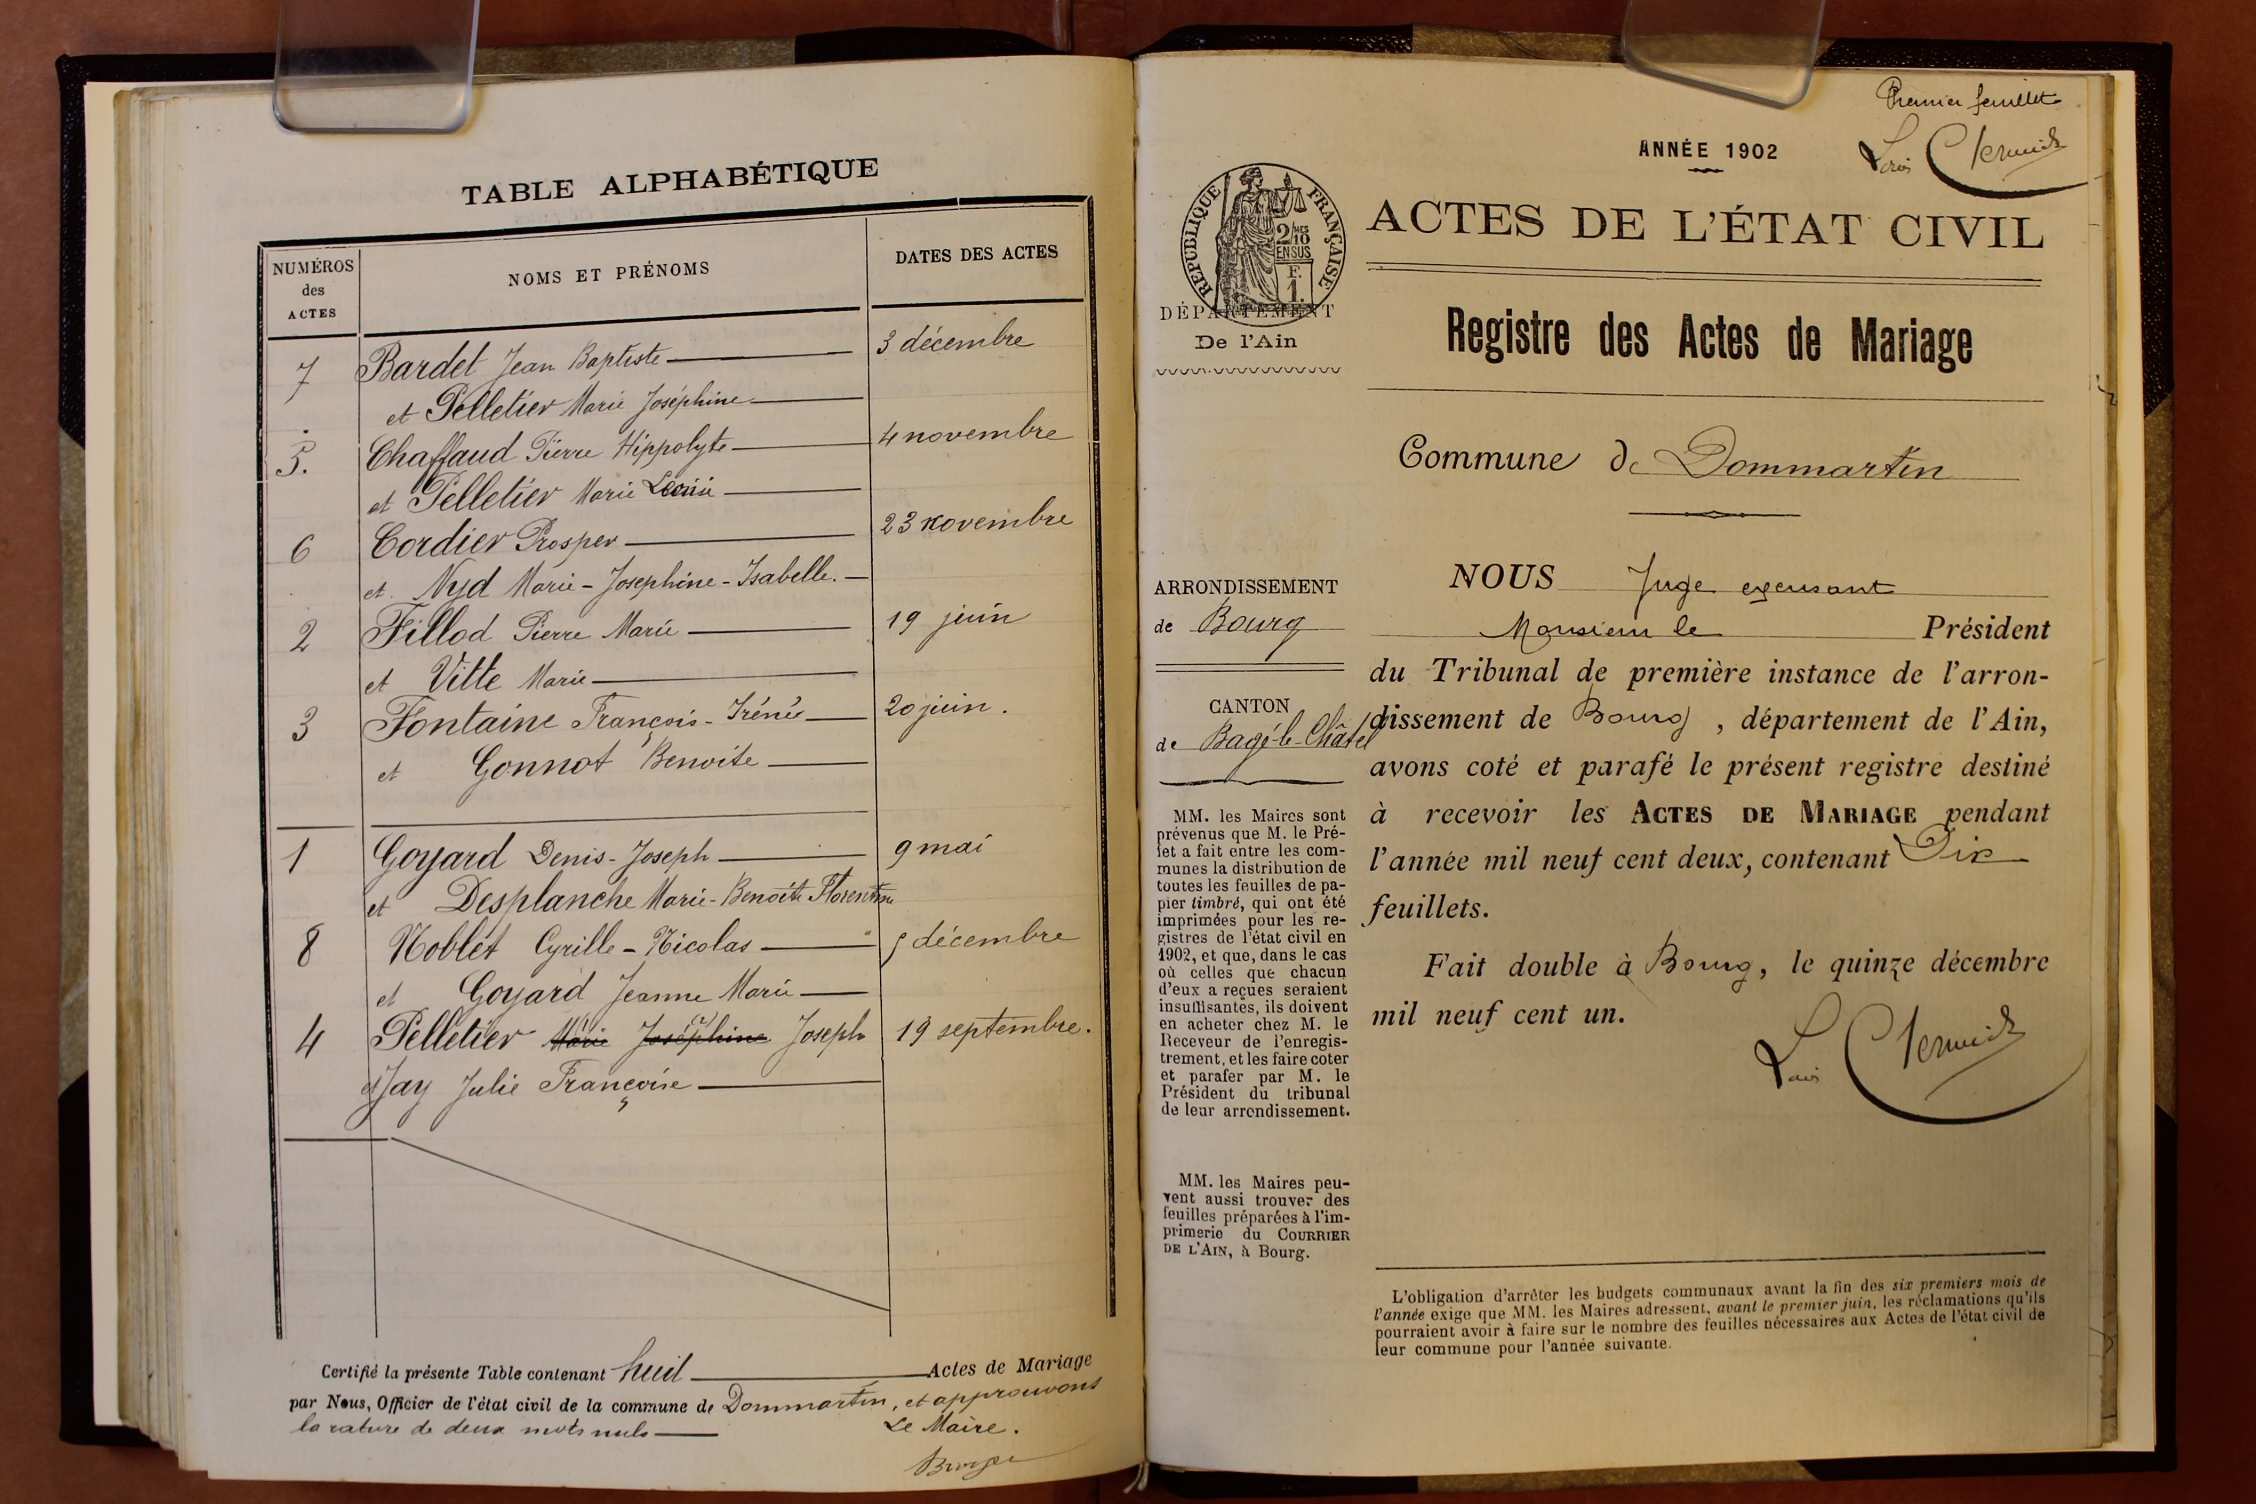 TABLE ALPHABÉTIQUE
NUMÉROS
des
ACTES
NOMS ET PRÉNOMS
DATES DES ACTES
7 Bardet Jean Baptiste 3 décembre
et Pelletier Marie Joséphine
5. Chaffaud Pierre Hippolyte 4 novembre
et Pelletier Marie Léonie
6 Cordier Prosper 23 novembre
et Nyd Marie-Josephine-Isabelle.
2 Fillod Pierre Marie 19 juin
et Vitte Marie
3 Fontaine François-Irénée 20 juin.
et Gonnot Benoite
1 Goyard Denis-Joseph 9 mai
et Desplanche Marie-Benoite Florentine
8 Noblet Cyrille-Nicolas 5 décembre
et Goyard Jeanne Marie
4 Pelletier Marie Joséphine Joseph 19 septembre.
et Jay Julie Françoise
Certifié la présente Table contenant huit Actes de Mariage
par Nous, Officier de l'état civil de la commune de Dommartin, et approuvons
la rature de deux mots nuls
Le Maire.
Premier feuillet
Louis
ANNÉE 1902
RÉPUBLIQUE FRANÇAISE
2/10MES
EN SUS
F.
1.
DÉPARTEMENT
De l'Ain
ACTES DE L'ÉTAT CIVIL
Registre des Actes de Mariage
Commune de Dommartin
ARRONDISSEMENT
de Bourg
CANTON
de Bagé-le-Châtel
MM. les Maires sont
prévenus que M. le Pré-
fet a fait entre les com-
munes la distribution de
toutes les feuilles de pa-
pier timbré, qui ont été
imprimées pour les re-
gistres de l'état civil en
1902, et que, dans le cas
où celles que chacun
d'eux a reçues seraient
insuffisantes, ils doivent
en acheter chez M. le
Receveur de l'enregis-
trement, et les faire coter
et parafer par M. le
Président du tribunal
de leur arrondissement.
MM. les Maires peu-
vent aussi trouver des
feuilles préparées à l'im-
primerie du COURRIER
DE L'AIN, à Bourg.
NOUS Juge excusant
Monsieur le Président
du Tribunal de première instance de l'arron-
dissement de Bourg, département de l'Ain,
avons coté et parafé le présent registre destiné
à recevoir les ACTES DE MARIAGE pendant
l'année mil neuf cent deux, contenant Dix
feuillets.
Fait double à Bourg, le quinze décembre
mil neuf cent un.
Louis
L'obligation d'arrêter les budgets communaux avant la fin des six premiers mois de
l'année exige que MM. les Maires adressent, avant le premier juin, les réclamations qu'ils
pourraient avoir à faire sur le nombre des feuilles nécessaires aux Actes de l'état civil de
leur commune pour l'année suivante.